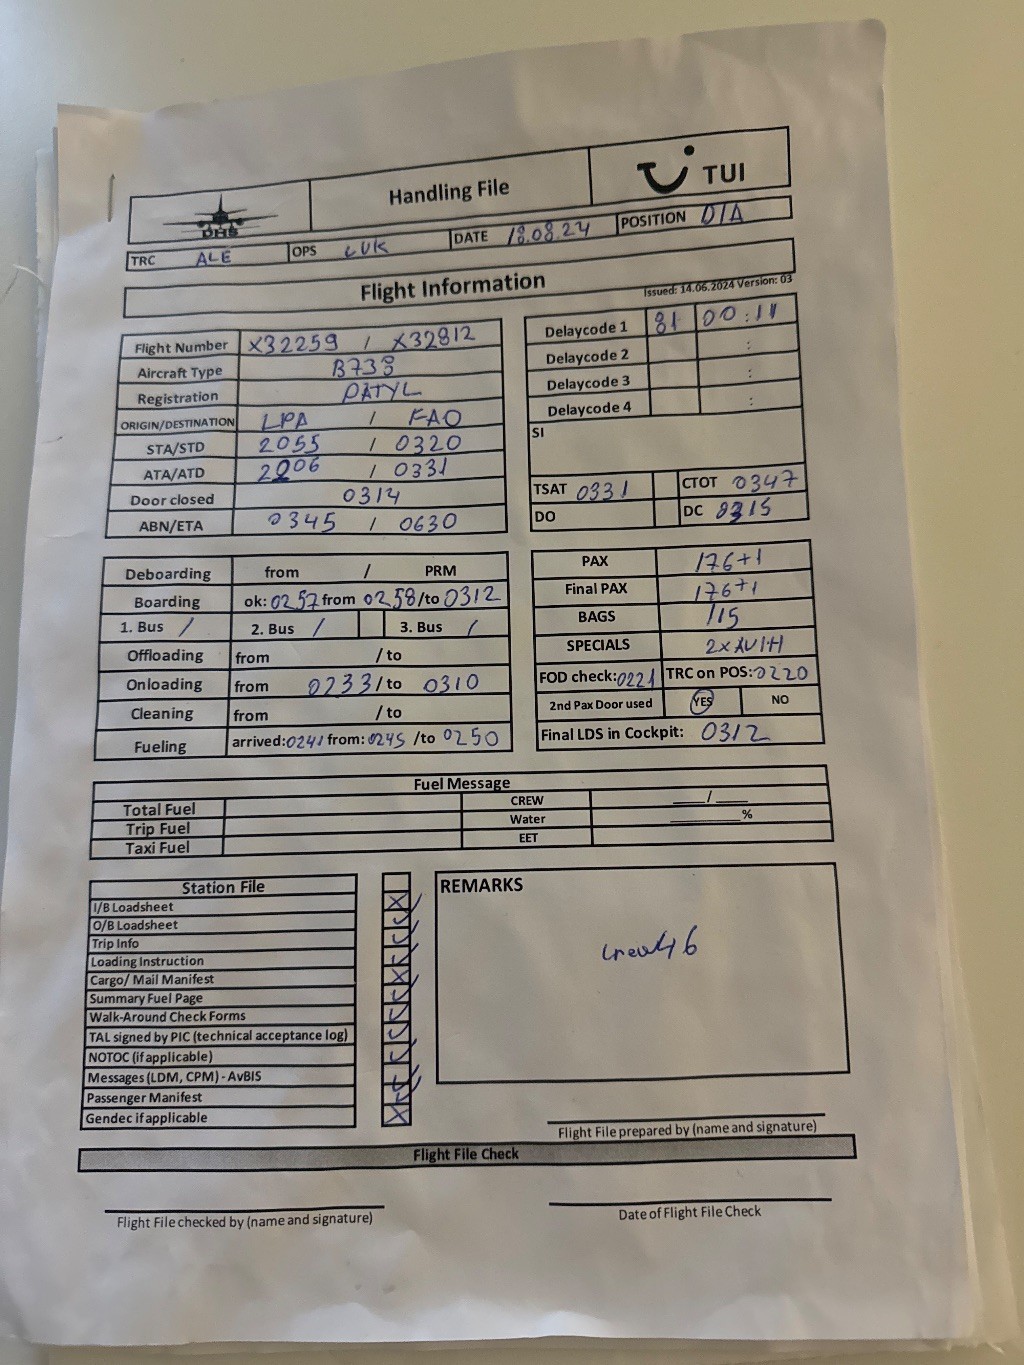 DHS
Handling File
TUI
TRC ALE OPS LUK DATE 18.08.24 POSITION 01A
Flight Information
Issued: 14.06.2024 Version: 03
Flight Number X32259 / X32812
Aircraft Type B738
Registration DATYL
ORIGIN/DESTINATION LPA / FAO
STA/STD 2055 / 0320
ATA/ATD 2206 / 0331
Door closed 0314
ABN/ETA 0345 / 0630
Delaycode 1 81 00:11
Delaycode 2 :
Delaycode 3 :
Delaycode 4 :
SI
TSAT 0331 CTOT 0347
DO DC 0315
Deboarding from / PRM
Boarding ok: 0257 from 0258/to 0312
1. Bus / 2. Bus / 3. Bus /
Offloading from / to
Onloading from 0233 / to 0310
Cleaning from / to
Fueling arrived: 0241 from: 0245 /to 0250
PAX 176+1
Final PAX 176+1
BAGS 115
SPECIALS 2x
FOD check: 0221 TRC on POS: 0220
2nd Pax Door used YES NO
Final LDS in Cockpit: 0312
Fuel Message
Total Fuel CREW ___/___
Trip Fuel Water ______%
Taxi Fuel EET
Station File
I/B Loadsheet
O/B Loadsheet
Trip Info
Loading Instruction
Cargo/ Mail Manifest
Summary Fuel Page
Walk-Around Check Forms
TAL signed by PIC (technical acceptance log)
NOTOC (if applicable)
Messages (LDM, CPM) - AvBIS
Passenger Manifest
Gendec if applicable
REMARKS
Flight File prepared by (name and signature)
Flight File Check
Flight File checked by (name and signature)
Date of Flight File Check